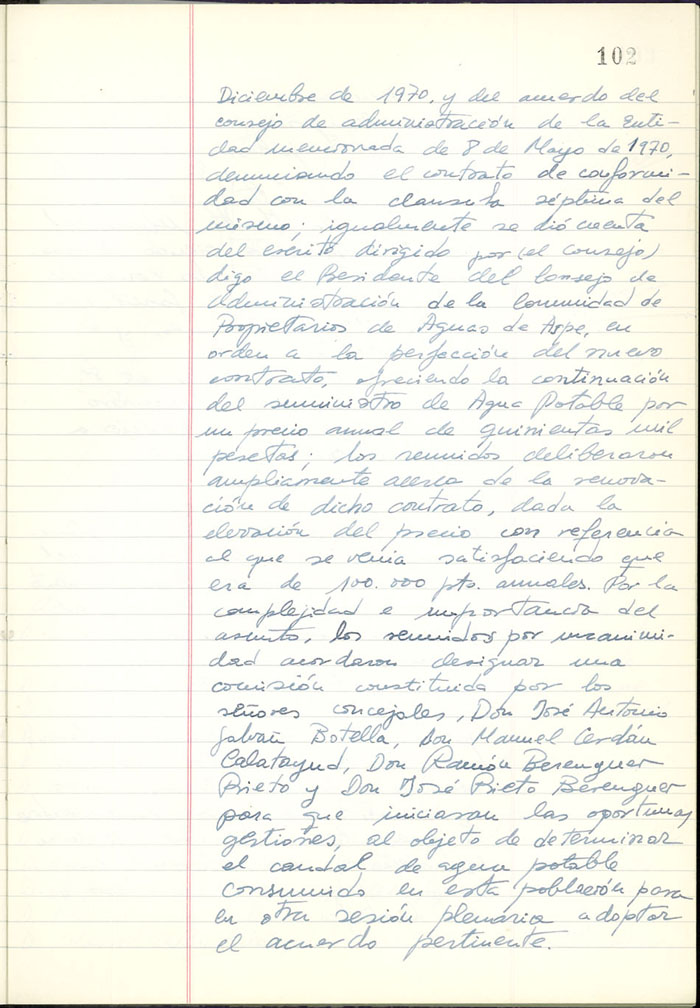 102
Diciembre de 1970, y del acuerdo del
consejo de administración de la Enti-
dad mencionada de 8 de Mayo de 1970,
denunciando el contrato de conformi-
dad con la clausula séptima del
mismo; igualmente se dió cuenta
del escrito dirigido por (el consejo)
digo el Presidente del Consejo de
Administración de la Comunidad de
Propietarios de Aguas de Aspe, en
orden a la perfección del nuevo
contrato, ofreciendo la continuación
del suministro de Agua Potable por
un precio anual de quinientas mil
pesetas; los reunidos deliberaron
ampliamente acerca de la renova-
ción de dicho contrato, dada la
elevación del precio con referencia
al que se venia satisfaciendo que
era de 100.000 pts. anuales. Por la
complejidad e importancia del
asunto, los reunidos por unanimi-
dad acordaron designar una
comisión constituida por los
señores concejales, Don José Antonio
Galván Botella, Don Manuel Cerdán
Calatayud, Don Ramón Berenguer
Prieto y Don José Prieto Berenguer
para que iniciaran las oportunas
gestiones, al objeto de determinar
el caudal de agua potable
consumido en esta población para
en otra sesión plenaria adoptar
el acuerdo pertinente.